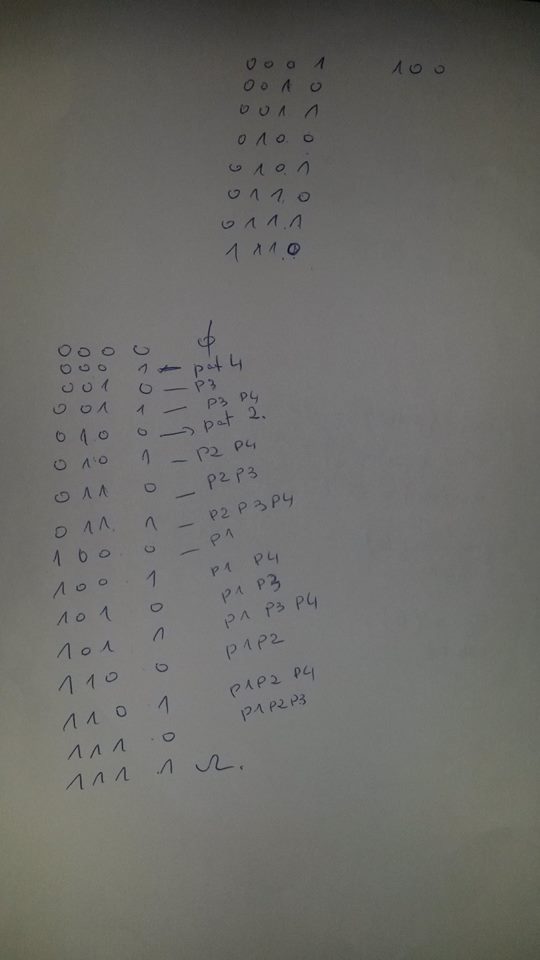 0001 100
0010
0011
0100
0101
0110
0111
1110
000 0 ϕ
000 1 — pat 4
001 0 — P3
001 1 — P3 P4
010 0 → pat 2.
010 1 — P2 P4
011 0 — P2P3
011 1 — P2 P3 P4
100 0 — P1
100 1 P1 P4
101 0 P1 P3
101 1 P1 P3 P4
110 0 P1P2
110 1 P1P2 P4
111 0 P1P2P3
111 1 Ω.